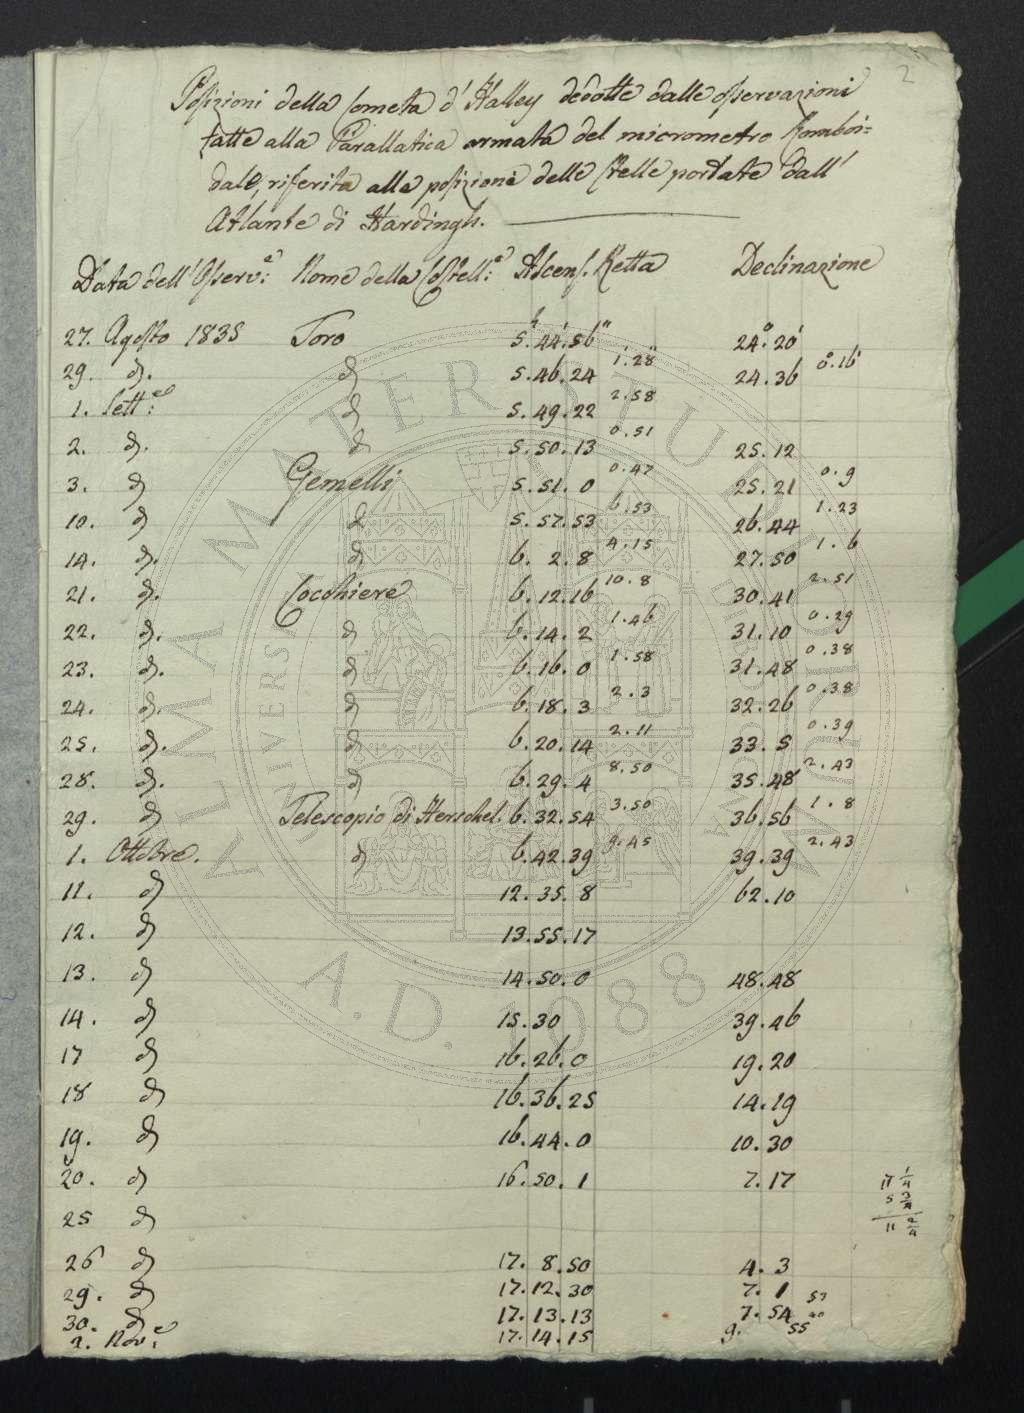 2
Posizioni della Cometa d'Halley dedotte dalle osservazioni
fatte alla Parallatica armata del micrometro Romboi=
dale, riferita alle posizioni delle stelle portate dall'
Atlante di Hardingh.
Data dell'Osserv:e Nome della Costell:e Ascens. Retta Declinazione
27. Agosto 1835 Toro 5.h 44.' 56" 24.° 20'
29. d. d 5. 46. 24 1.' 28" 24. 36 0.° 16'
1. Sett:e d 5. 49. 22 2. 58
2. d. d 5. 50. 13 0. 51 25. 12
3. d Gemelli 5. 51. 0 0. 47 25. 21 0. 9
10. d d 5. 57. 53 6. 53 26. 44 1. 23
14. d. d 6. 2. 8 4. 15 27. 50 1. 6
21. d. Cocchiere 6. 12. 16 10. 8 30. 41 2. 51
22. d. d 6. 14. 2 1. 46 31. 10 0. 29
23. d. d 6. 16. 0 1. 58 31. 48 0. 38
24. d. d 6. 18. 3 2. 3 32. 26 0. 38
25. d. d 6. 20. 14 2. 11 33. 5 0. 39
28. d. d 6. 29. 4 8. 50 35. 48 2. 43
29. d Telescopio di Herschel. 6. 32. 54 3. 50 36. 56 1. 8
1. Ottobre. d 6. 42. 39 9. 45 39. 39 2. 43
11. d 12. 35. 8 62. 10
12. d 13. 55. 17
13. d 14. 50. 0 48. 48
14. d 15. 30 39. 46
17 d 16. 26. 0 19. 20
18 d 16. 36. 25 14. 19
19. d 16. 44. 0 10. 30
20. d 16. 50. 1 7. 17
17 1/4
5 3/4
11 2/4
25 d
26 d 17. 8. 50 4. 3
29. d 17. 12. 30 7. 1 53
30. d 17. 13. 13 7. 54
2. Nov:e 17. 14. 15 9. 55
ALMA MATER STUDIORUM
A.D. 1088